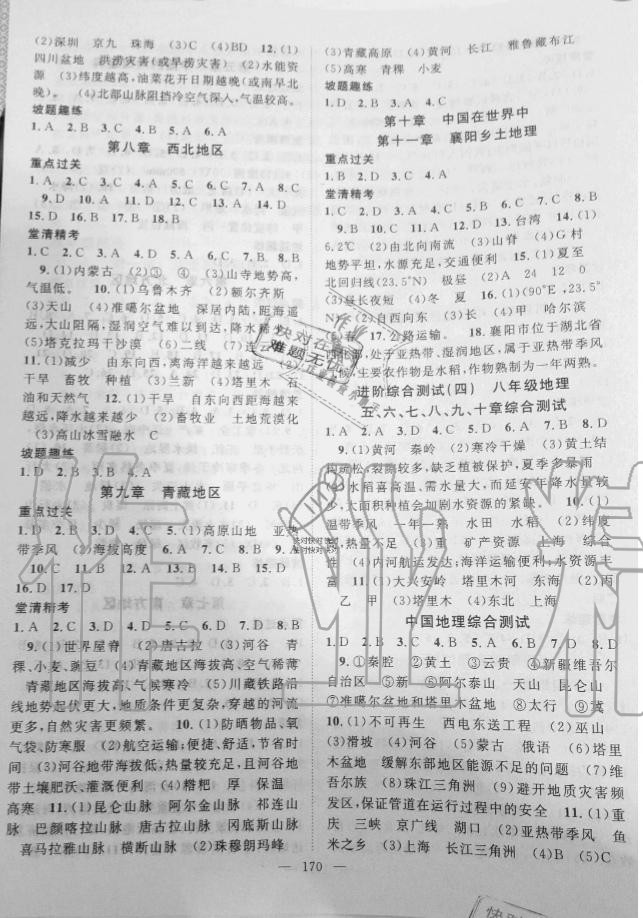 (2)深圳 京九 珠海 (3)C (4)BD 12.(1)
四川盆地 洪涝灾害(或旱涝灾害) (2)水能资
源 (3)纬度越高,油菜花开日期越晚(或南早北
晚)。 (4)北部山脉阻挡冷空气深入,气温较高。
坡题趣练
1.A 2.B 3.C 4.B 5.A 6.A
第八章 西北地区
重点过关
1.A 2.C 3.C 4.A 5.C 6.A 7.C 8.C
9.D 10.D 11.A 12.C 13.D 14.D
15.D 16.A 17.B 18.B
堂清精考
1.D 2.B 3.C 4.A 5.A 6.C 7.B 8.B
9.(1)内蒙古 (2)① ④ (3)山寺地势高,
气温低。 10.(1)乌鲁木齐 (2)额尔齐斯
(3)天山 (4)准噶尔盆地 深居内陆,距海遥远,
大山阻隔,湿润空气难以到达,降水稀少
(5)塔克拉玛干沙漠 (6)二线 (7)连云
11.(1)减少 自东向西,离海洋越来越远
干旱 畜牧 种植 (3)兰新 (4)塔里木 石
油和天然气 12.(1)干旱 自东向西距海越来
越远,降水越来越少 (2)畜牧业 土地荒漠化
(3)高山冰雪融水 C
坡题趣练
1.D 2.B 3.A 4.B
第九章 青藏地区
重点过关
1.D 2.B 3.D 4.C 5.(1)高原山地 亚热
带季风 (2)海拔高度 6.A 7.A 8.D 9.A
10.C 11.C 12.A 13.A 14.D 15.D
16.D 17.D
堂清精考
1.A 2.C 3.D 4.C 5.D 6.A 7.C 8.D
9.(1)世界屋脊 (2)唐古拉 (3)河谷 青
稞、小麦、豌豆 (4)青藏地区海拔高、空气稀薄
青藏地区海拔高、气候寒冷 (5)川藏铁路沿
线地势起伏更大,地质条件更复杂,穿越的河流
更多,自然灾害更频繁。 10.(1)防晒物品、氧
气袋、防寒服 (2)航空运输:便捷、舒适,节省时
间 (3)河谷地带海拔较低,热量较充足,且河谷地
带土壤肥沃、灌溉便利 (4)糌粑 厚 保温
高寒 11.(1)昆仑山脉 阿尔金山脉 祁连山
脉 巴颜喀拉山脉 唐古拉山脉 冈底斯山脉
喜马拉雅山脉 横断山脉 (2)珠穆朗玛峰
(3)青藏高原 (4)黄河 长江 雅鲁藏布江
(5)高寒 青稞 小麦
坡题趣练
1.D 2.B 3.A 4.C
第十章 中国在世界中
第十一章 襄阳乡土地理
重点过关
1.D 2.A 3.A
堂清精考
1.C 2.C 3.D 4.D 5.A 6.D 7.C 8.B
9.B 10.C 11.A 12.A 13.台湾 14.(1)
6.2℃ (2)由北向南流 (3)山脊 (4)G村
地势平坦,水源充足,交通便利。 15.(1)夏至
北回归线(23.5°N) 极昼 (2)A 24 12 0
(3)昼长夜短 (4)C 16.(1)(90°E,23.5°
N) (2)自西北向东南 (3)C (4)甲 哈尔滨
17.公路运输。 18.襄阳市位于湖北省
西北部,处于亚热带、湿润地区,属亚热带季风气
候,主要农作物是水稻,作物熟制为一年两熟。
进阶综合测试(四) 八年级地理
五、六、七、八、九、十章综合测试
1.D 2.D 3.B 4.B 5.B 6.D 7.B 8.D
9.(1)黄河 秦岭 (2)寒冷干燥 (3)黄土结
构疏松,裂隙较多,缺乏植被保护,夏季多暴雨
(4)水稻喜高温、需水量大,而延安年降水量较
少,大面积种植会加剧水资源的紧缺。 10.(1)
温带季风 一年一熟 水田 水稻 (2)纬度
亚热带季风 (3)重 矿产资源 上海 综合
(4)内河航运发达;海洋运输便利;水资源丰
富 11.(1)大兴安岭 塔里木河 东海 (2)丙
乙 甲 (3)塔里木 (4)东北 上海
中国地理综合测试
1.D 2.B 3.C 4.D 5.B 6.D 7.D 8.D
9.①秦腔 ②黄土 ③云贵 ④新疆维吾尔
自治区 ⑤新 ⑥阿尔泰山 天山 昆仑山
⑦准噶尔盆地和塔里木盆地 ⑧太行 ⑨冀
10.(1)不可再生 西电东送工程 (2)巫山
(3)滑坡 (4)河谷 (5)蒙古 俄语 (6)塔里
木盆地 缓解东部地区能源不足的问题 (7)维
吾尔族 (8)珠江三角洲 (9)避开地质灾害频
发区,保证管道在运行过程中的安全 11.(1)重
庆 三峡 京广线 湖口 (2)亚热带季风 鱼
米 (3)上海 长江三角洲 (4)B (5)C
— 170 —